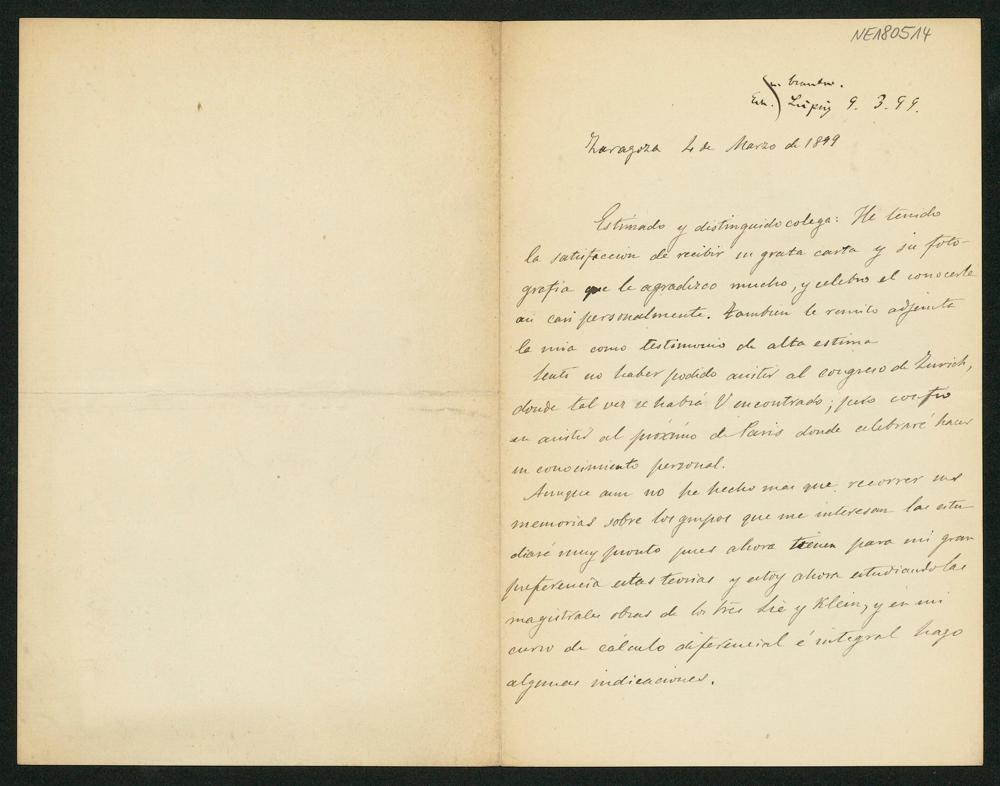 NE180514
Leipzig 9. 3. 99.
Zaragoza 4 de Marzo de 1899
Estimado y distinguido colega: He tenido
la satisfaccion de recibir su grata carta y su foto-
grafia que le agradezco mucho, y celebro el conocerle
asi casi personalmente. Tambien le remito adjunta
la mia como testimonio de alta estima
Senti no haber podido asistir al congreso de Zurich,
donde tal vez se habrá V encontrado; pero confio
en asistir al próximo de Paris donde celebraré hacer
su conocimiento personal.
Aunque aun no he hecho mas que recorrer sus
memorias sobre los grupos que me interesan las estu-
diaré muy pronto pues ahora tienen para mi gran
preferencia estas teorias y estoy ahora estudiando las
magistrales obras de los Sres Lie y Klein, y en mi
curso de cálculo diferencial é integral hago
algunas indicaciones.